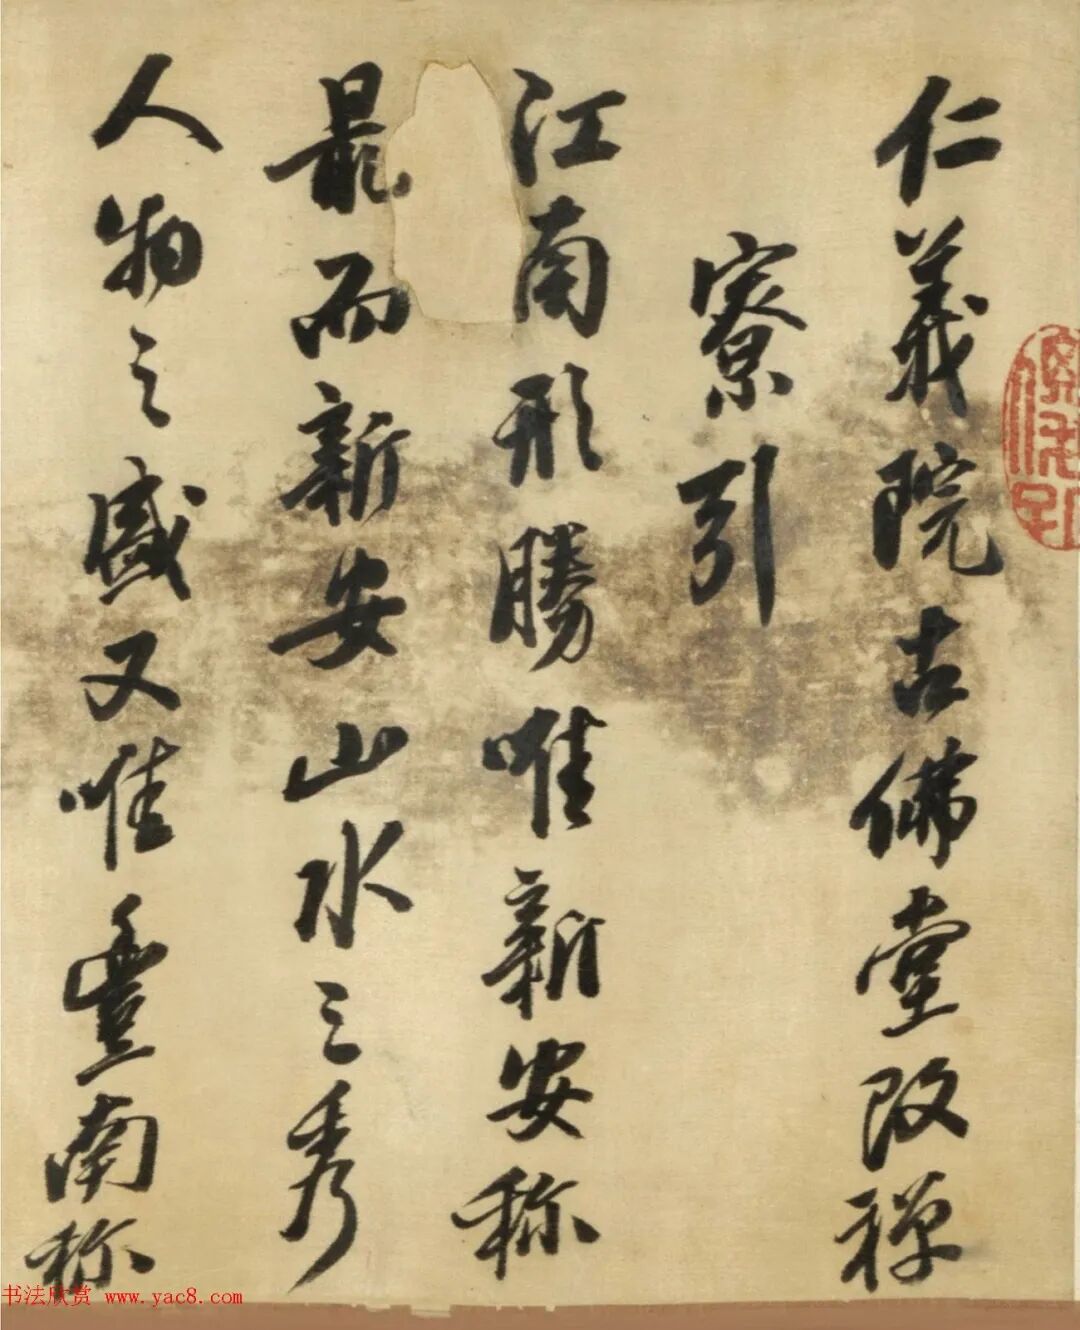 仁義院古佛堂改禅
寮引
江南形勝唯新安称
最而新安山水之秀
人物之盛又唯豐南称
书法欣赏 www.yac8.com